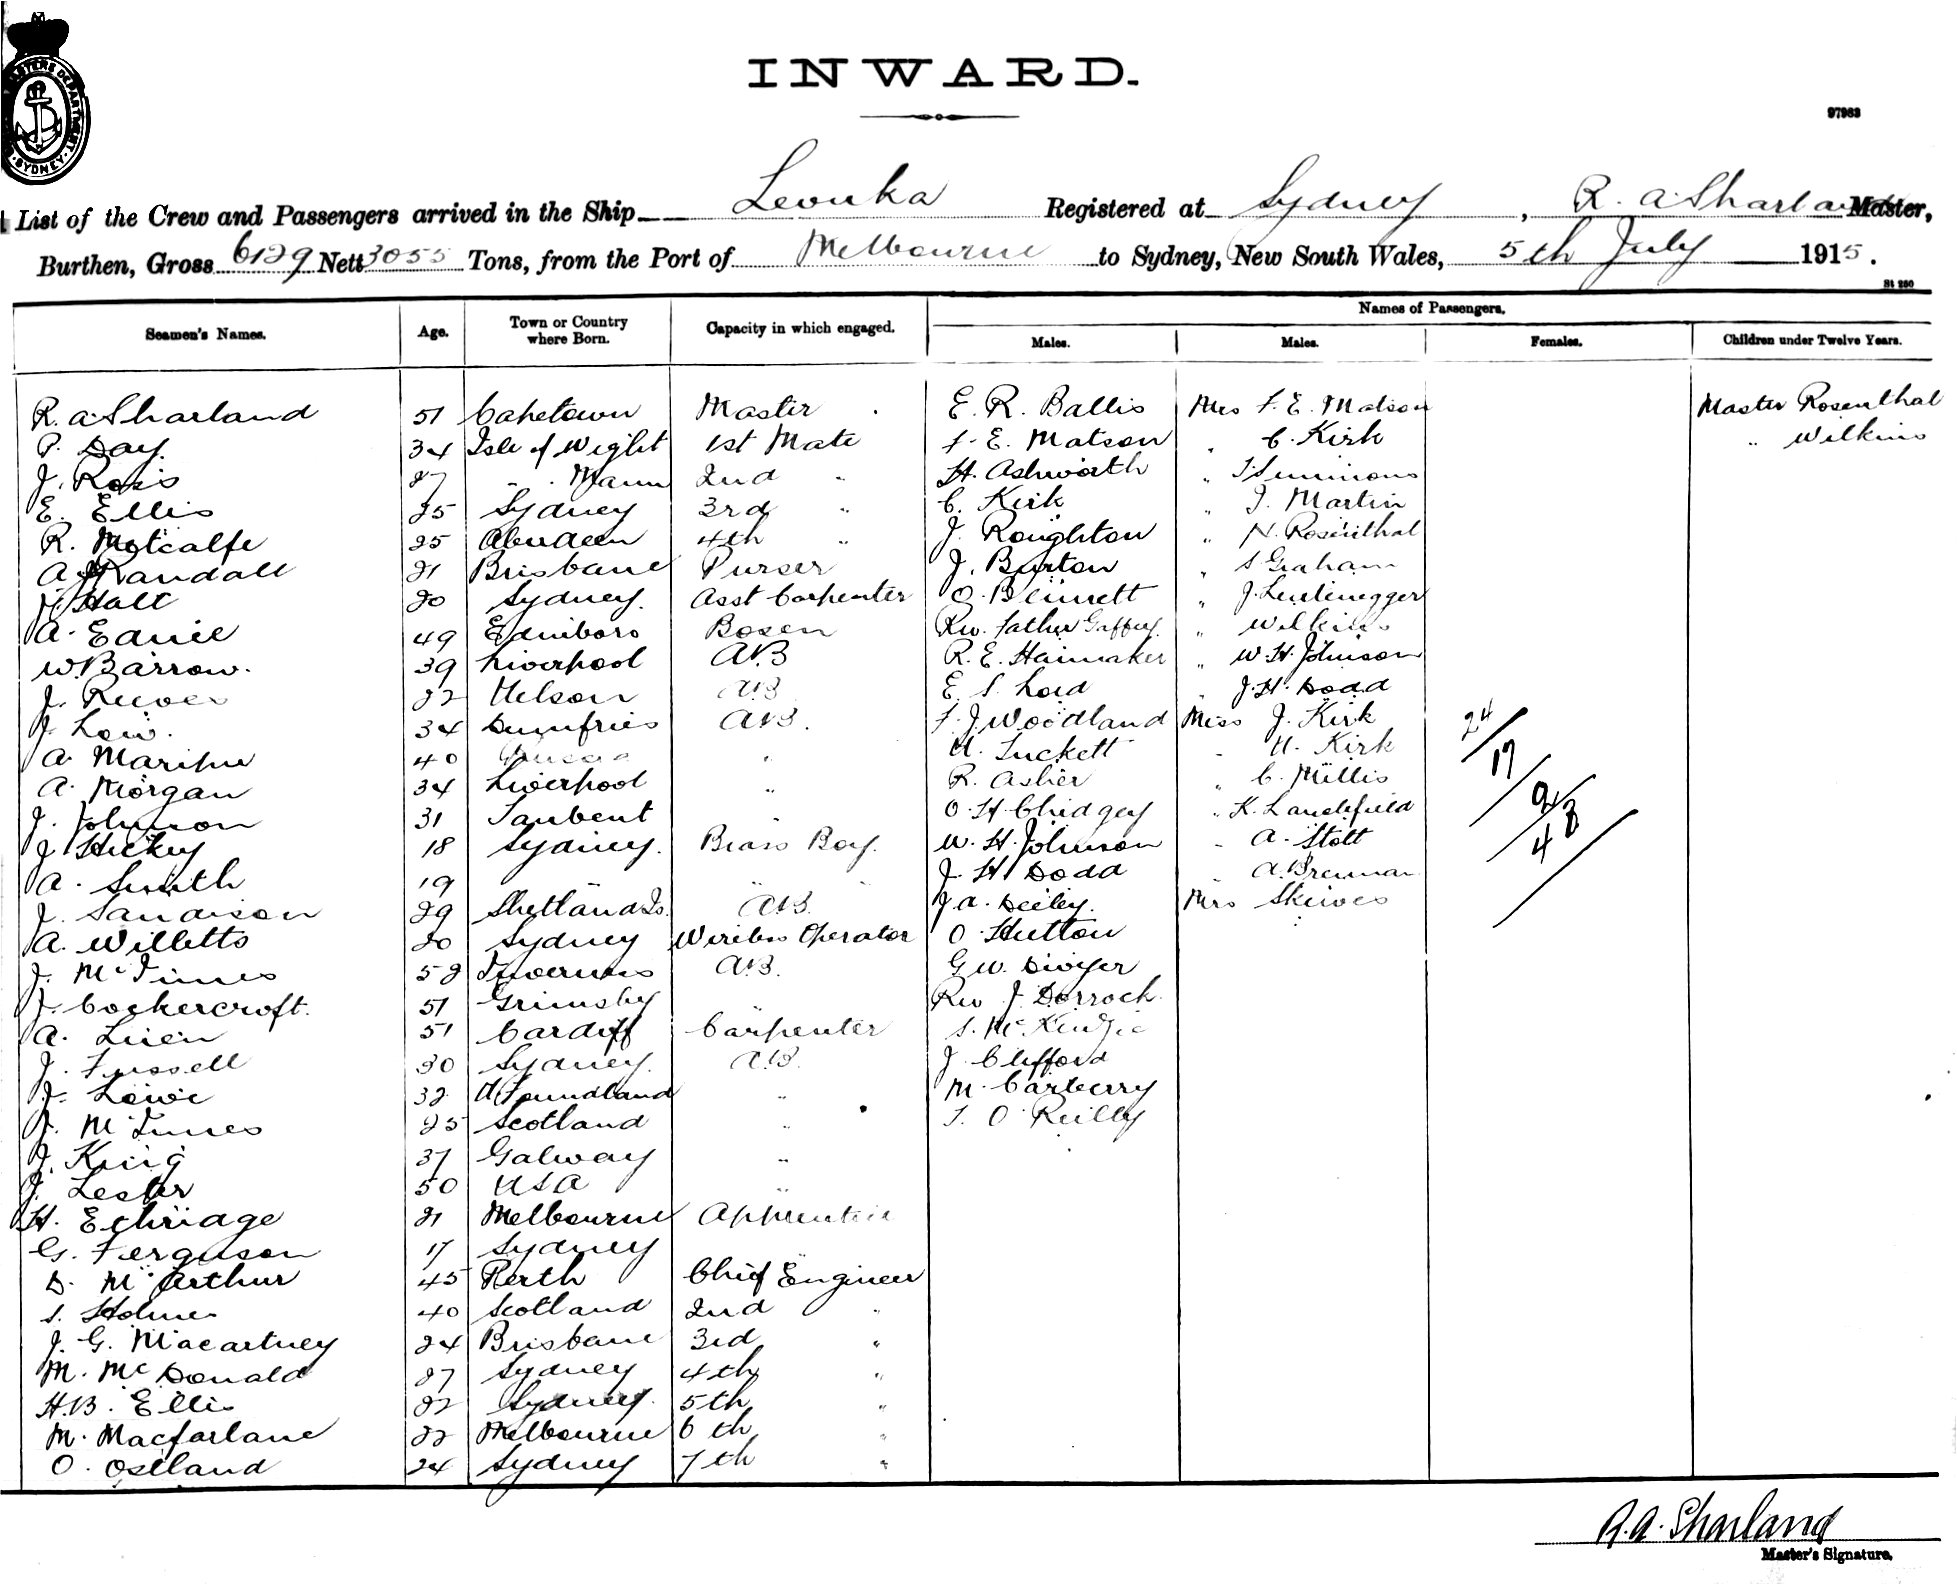 MASTERS DEPARTMENT
SYDNEY
INWARD.
97963
List of the Crew and Passengers arrived in the Ship Levuka Registered at Sydney, R. A. Sharland Master,
Burthen, Gross 6129 Nett 3055 Tons, from the Port of Melbourne to Sydney, New South Wales, 5th July 1915.
St 250
Names of Passengers.
Seamen's Names. Age. Town or Country where Born. Capacity in which engaged. Males. Males. Females. Children under Twelve Years.
R. A. Sharland 51 Capetown Master E. R. Ballis Mrs F. E. Matson Master Rosenthal
P. Day. 34 Isle of Wight 1st Mate F. E. Matson " C. Kirk " Wilkins
J. Ross 27 " " Mann 2nd " H. Ashworth " Simmons
E. Ellis 25 Sydney 3rd " C. Kirk " J. Martin
R. Metcalfe 25 Aberdeen 4th " J. Roughton " N. Rosenthal
A. Randall 21 Brisbane Purser J. Burton " S Graham
Hall 20 Sydney. Asst Carpenter O. Bennett " J. Leutenegger
A. Edmiboro 49 Bosen Rev. Father Gaffney. " Wilkins
W. Barrow. 39 Liverpool AB R. E. Hainmaker " W. H. Johnson
J. Reeves 22 Nelson AB E. S. Lord " J. H. Dodd
J. Low. 34 Dumfries AB. F. J. Woodland Miss J. Kirk 24
A. 40 " Tuckett " Kirk 17
A. Morgan 34 Liverpool " R. Asher " C. Millis 2
J. Johnson 31 " O. H. Chidgey " K. 43
J. Hickey 18 Sydney. Brass Boy. W. H. Johnson " A. Stott
A. Smith 19 " " " J. H. Dodd " A. Brennan
J. Sandison 29 Shetland Is. AB. J. A. Deeley. Mrs Skewes
A. Willetts 20 Sydney Wireless Operator O. Hutton
J. McInnes 52 Inverness AB. G. W. Dwyer
J. Cockercroft. 51 Grimsby " Rev J. Dorroch.
A. 51 Cardiff Carpenter S. McKenzie
J. Fussell 30 Sydney. AB. J. Clifford
J. Lowe 32 N Foundland " M. Carberry
J. McInnes 25 Scotland " T. O'Reilly
J. King 37 Galway "
J. Lester 50 USA "
H. Ethridge 21 Melbourne Apprentice
G. Ferguson 17 Sydney
D. McArthur 45 Perth Chief Engineer
S. Holmes 40 Scotland 2nd "
J. G. Macartney 24 Brisbane 3rd "
M. McDonald 27 Sydney 4th "
H. B. Ellis 22 Sydney. 5th "
M. Macfarlane 22 Melbourne 6th "
O. Ostland 24 Sydney 7th "
R. A. Sharland
Master's Signature.